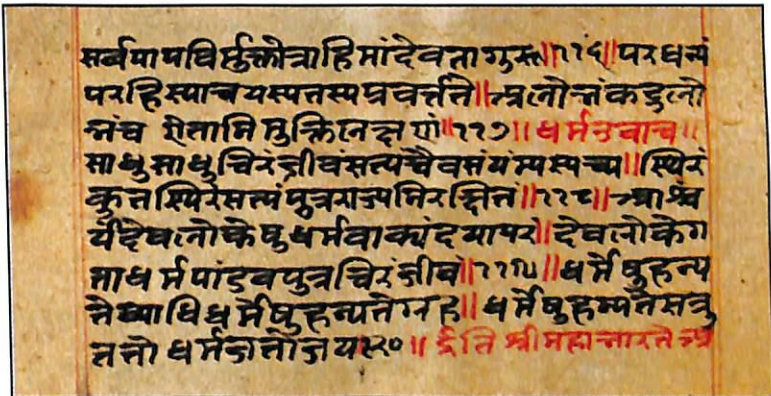 सर्बपापविर्मुक्तोत्राहिमांदेवतागुरू॥११६॥परधन्यं
परहिस्याचयस्पतस्पप्रवर्त्तते॥अलोनंकडुलो
नंच ॥११७॥धर्मउवाच॥
साधुसाधुचिरंजीवसत्यचैवसंयंम्यस्पच्य॥स्थिरं
कुतस्थिरंसत्यंपुत्रराज्यमिरक्षितं॥११८॥आश्च
र्यदेवलोकेषुधर्मवाक्यंदयापरं॥देवलोकेग
माधर्मपांडवपुत्रचिरंजीव॥११९॥धर्मेषुहन्य
तेव्याधिधर्मेषुहन्यतेग्रह॥धर्मेषुहन्यतेसत्रु
ततोधर्मजतोजय१२०॥ईतिश्रीमहाभारतेअ